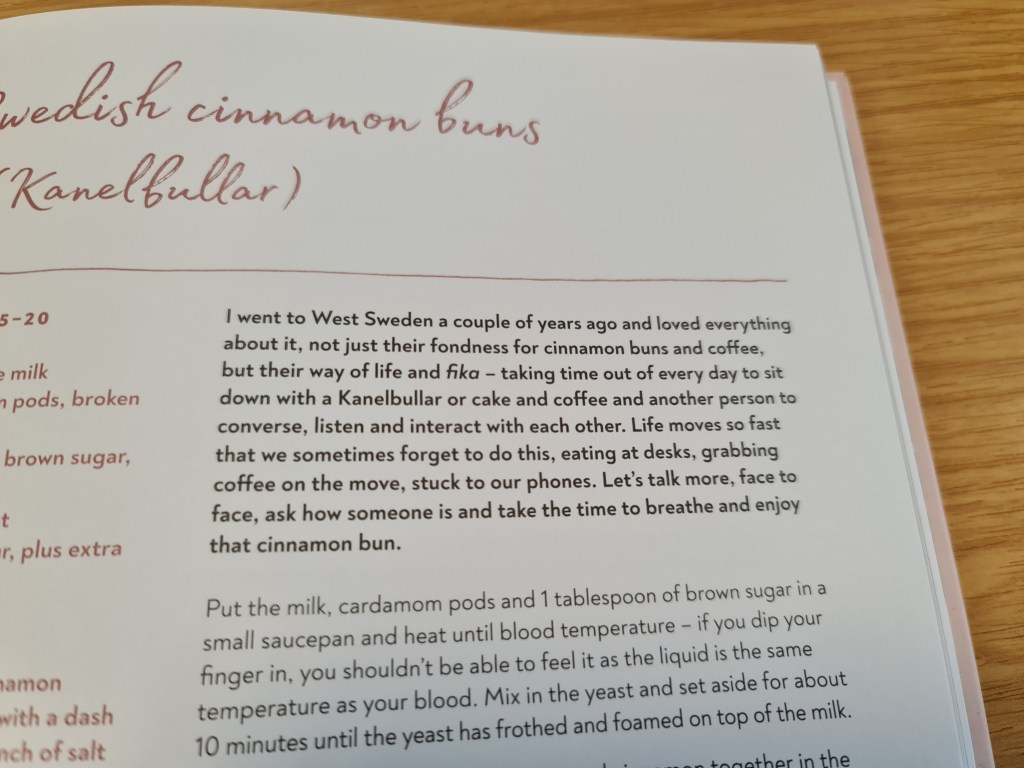 Swedish cinnamon buns
(Kanelbullar)
5–20
milk
pods, broken
brown sugar,
plus extra
with a dash
of salt
I went to West Sweden a couple of years ago and loved everything
about it, not just their fondness for cinnamon buns and coffee,
but their way of life and fika – taking time out of every day to sit
down with a Kanelbullar or cake and coffee and another person to
converse, listen and interact with each other. Life moves so fast
that we sometimes forget to do this, eating at desks, grabbing
coffee on the move, stuck to our phones. Let's talk more, face to
face, ask how someone is and take the time to breathe and enjoy
that cinnamon bun.
Put the milk, cardamom pods and 1 tablespoon of brown sugar in a
small saucepan and heat until blood temperature – if you dip your
finger in, you shouldn't be able to feel it as the liquid is the same
temperature as your blood. Mix in the yeast and set aside for about
10 minutes until the yeast has frothed and foamed on top of the milk.
together in the